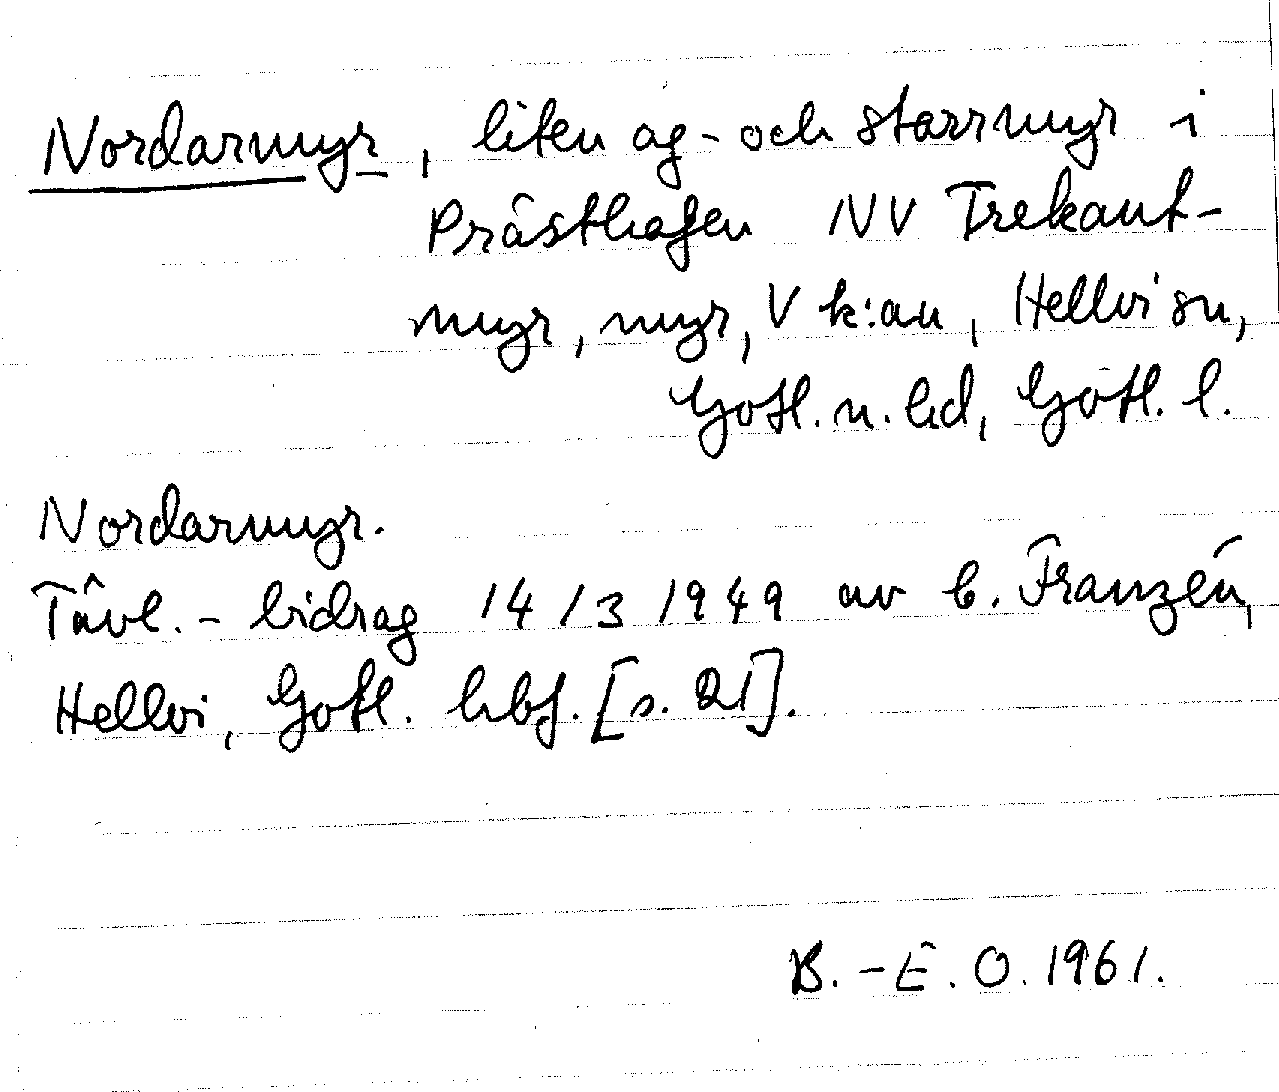 Nordarmyr, liten ag- och starrmyr i
Prästhagen NV Trekant-
myr, myr, V k:an, Hellvi sn,
Gotl. n. hd, Gotl. l.
Nordarmyr.
Tävl.-bidrag 14/3 1949 av b. Franzén,
Hellvi, Gotl. hbf. [s. 21].
B.-E. O. 1961.